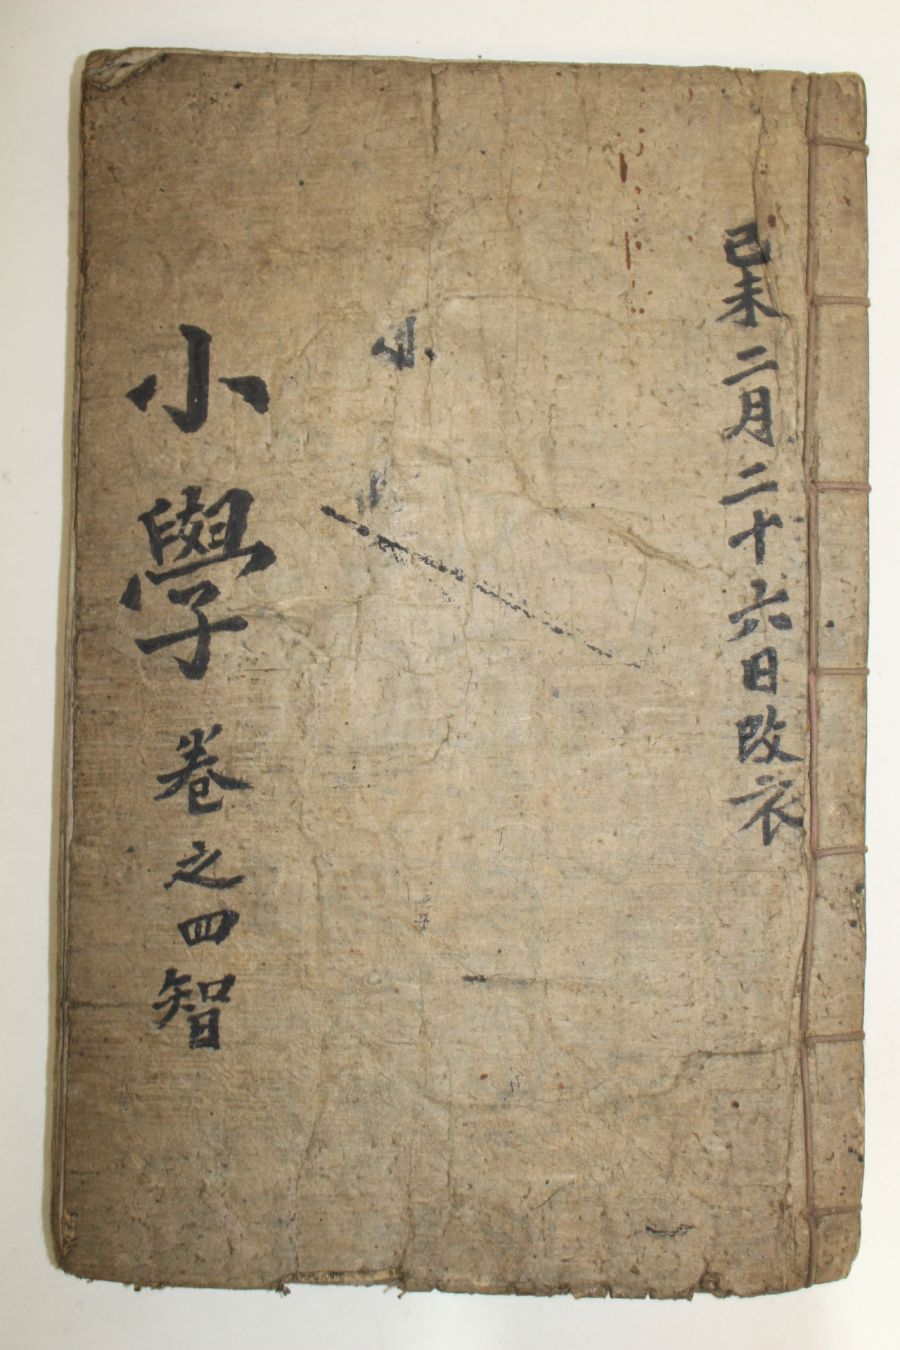 己未二月二十六日改衣
小
小學 卷之四 智